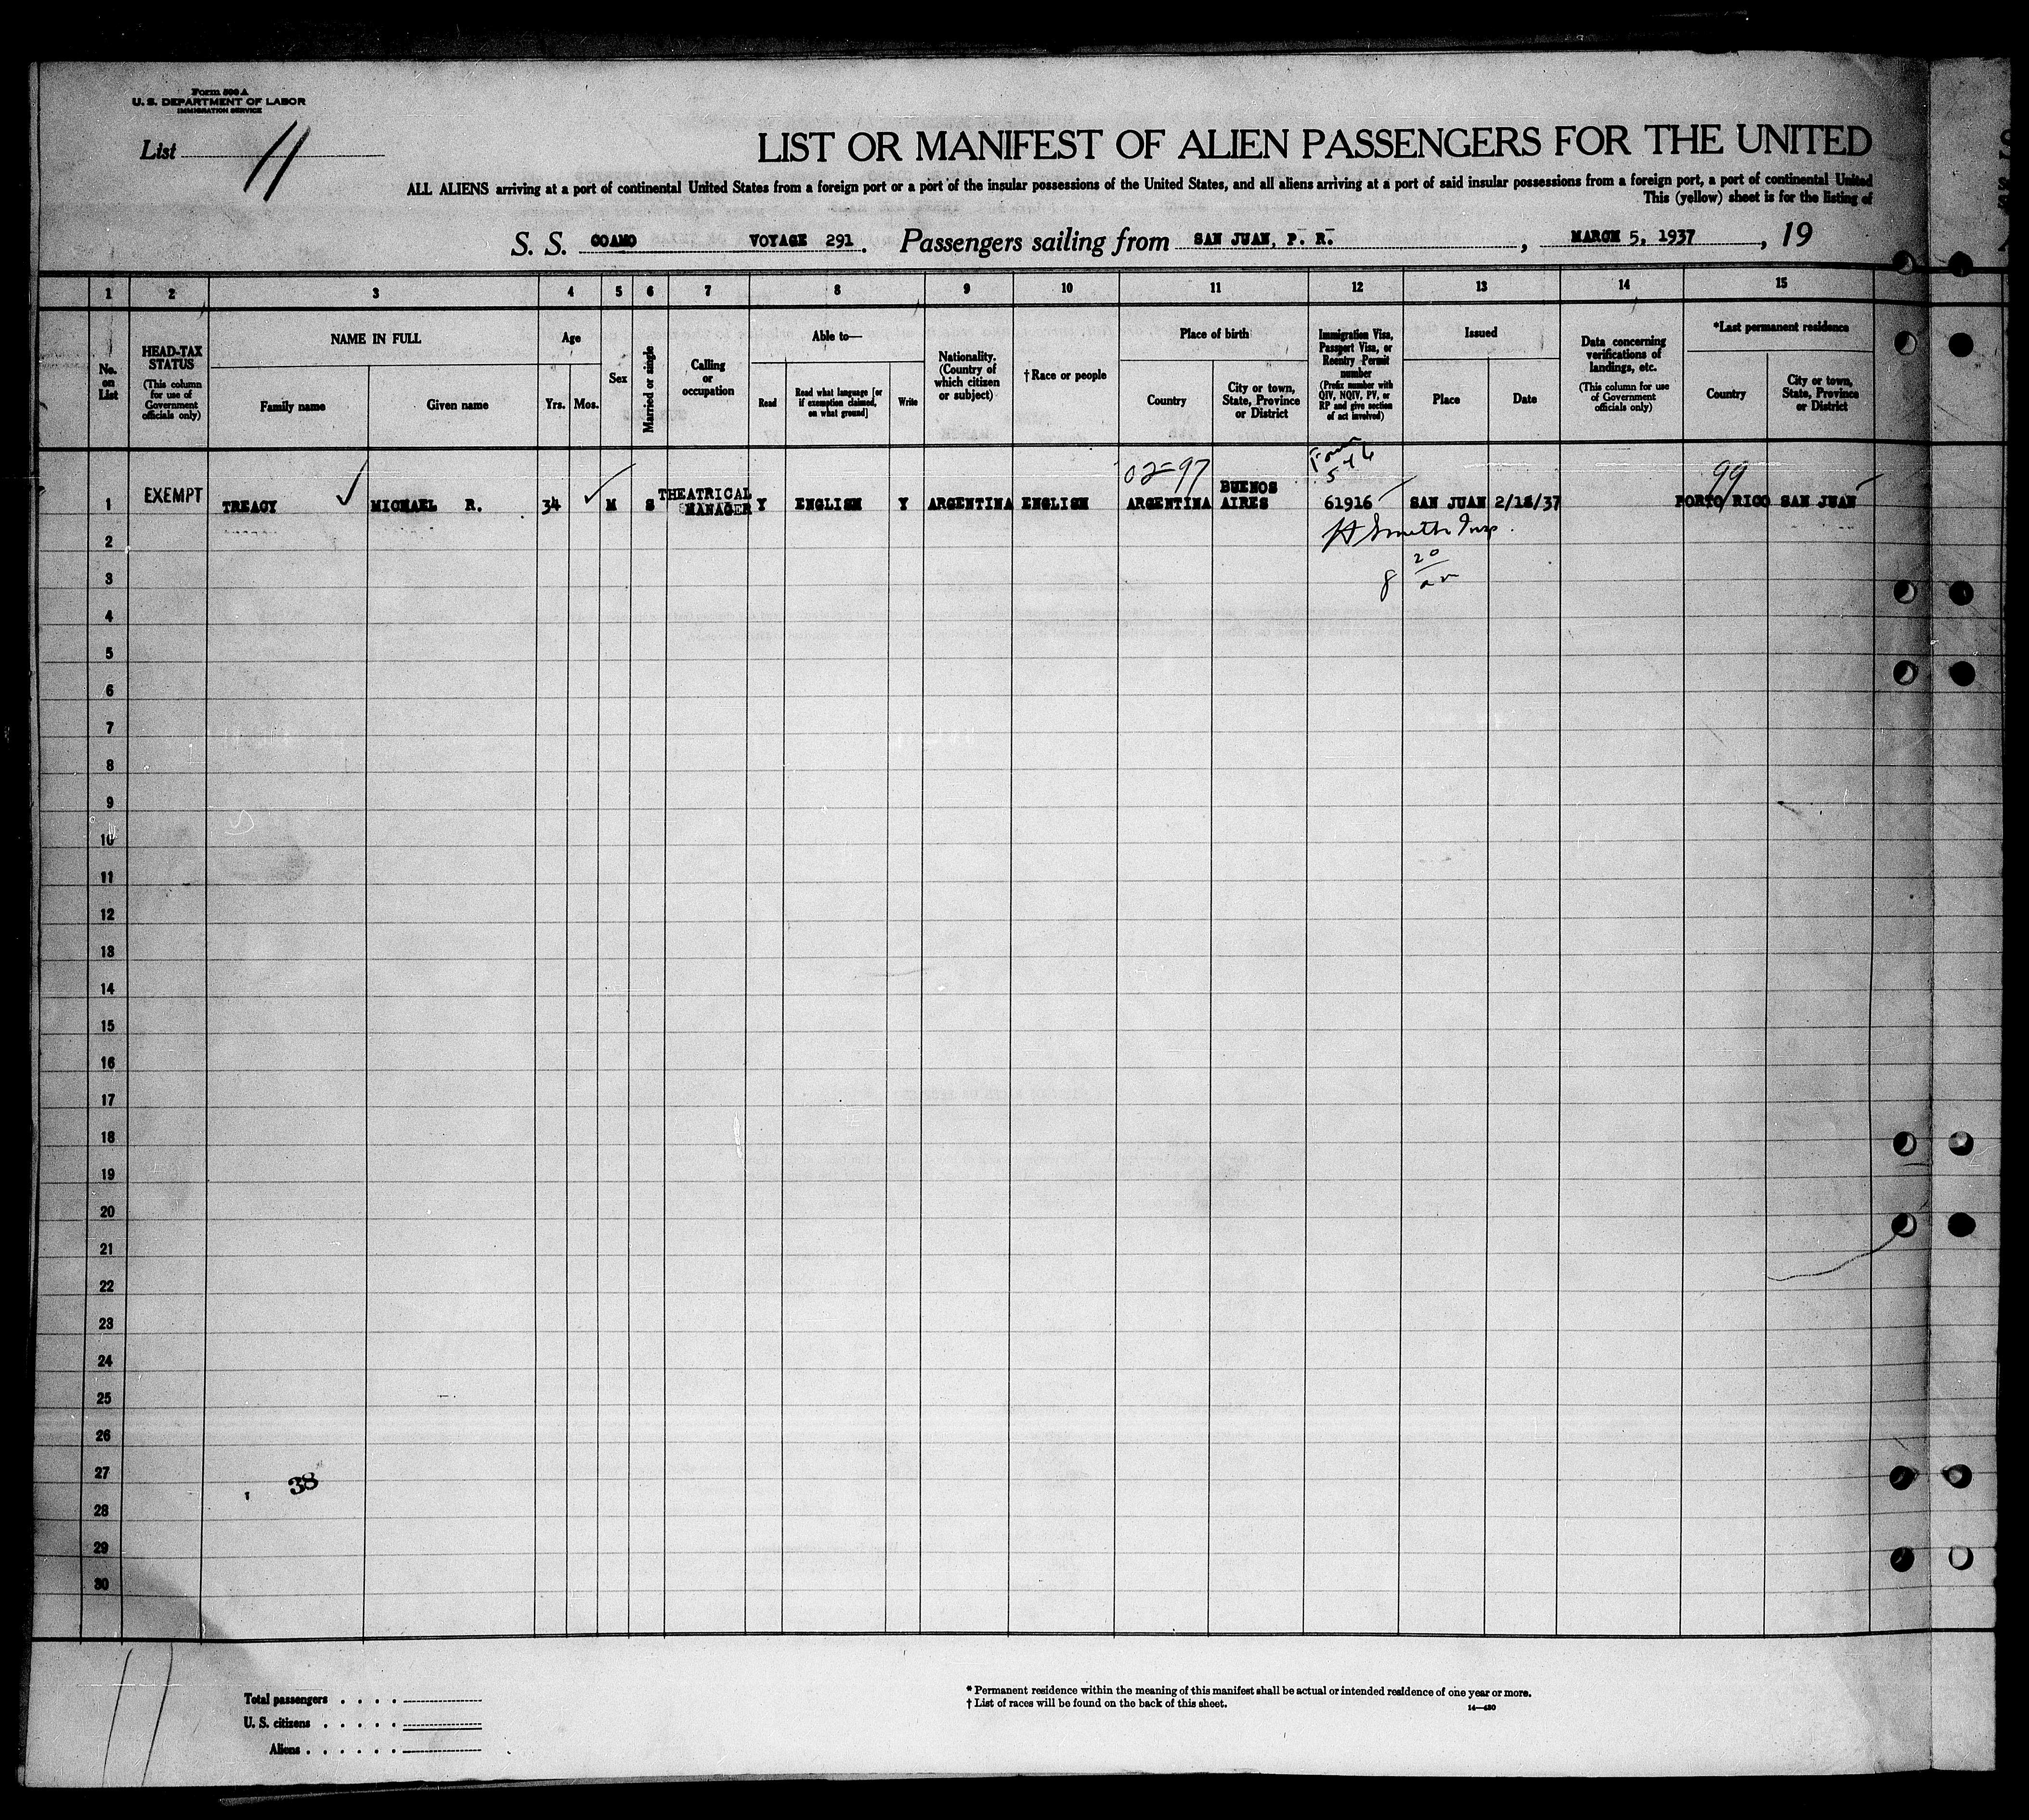 Form 500 A
U. S. DEPARTMENT OF LABOR
IMMIGRATION SERVICE
List 11
LIST OR MANIFEST OF ALIEN PASSENGERS FOR THE UNITED
ALL ALIENS arriving at a port of continental United States from a foreign port or a port of the insular possessions of the United States, and all aliens arriving at a port of said insular possessions from a foreign port, a port of continental United
This (yellow) sheet is for the listing of
S. S. COAMO VOYAGE 291. Passengers sailing from SAN JUAN, P. R., MARCH 5, 1937, 19
1 2 3 4 5 6 7 8 9 10 11 12 13 14 15
No. on List
HEAD-TAX STATUS
(This column for use of Government officials only)
NAME IN FULL
Family name
Given name
Age
Yrs. Mos.
Sex
Married or single
Calling or occupation
Able to—
Read
Read what language [or if exemption claimed, on what ground]
Write
Nationality. (Country of which citizen or subject)
†Race or people
Place of birth
Country
City or town, State, Province or District
Immigration Visa, Passport Visa, or Reentry Permit number
(Prefix number with QIV, NQIV, PV, or RP and give section of act involved)
Issued
Place
Date
Data concerning verifications of landings, etc.
(This column for use of Government officials only)
*Last permanent residence
Country
City or town, State, Province or District
02-97
99
1 EXEMPT TREACY MICHAEL R. 34 M S THEATRICAL MANAGER Y ENGLISH Y ARGENTINA ENGLISH ARGENTINA BUENOS AIRES 61916 SAN JUAN PORTO RICO SAN JUAN
H Smith Insp.
8 20
2
3
4
5
6
7
8
9
10
11
12
13
14
15
16
17
18
19
20
21
22
23
24
25
26
27
38
28
29
30
Total passengers
U. S. citizens
Aliens
* Permanent residence within the meaning of this manifest shall be actual or intended residence of one year or more.
† List of races will be found on the back of this sheet.
14—430